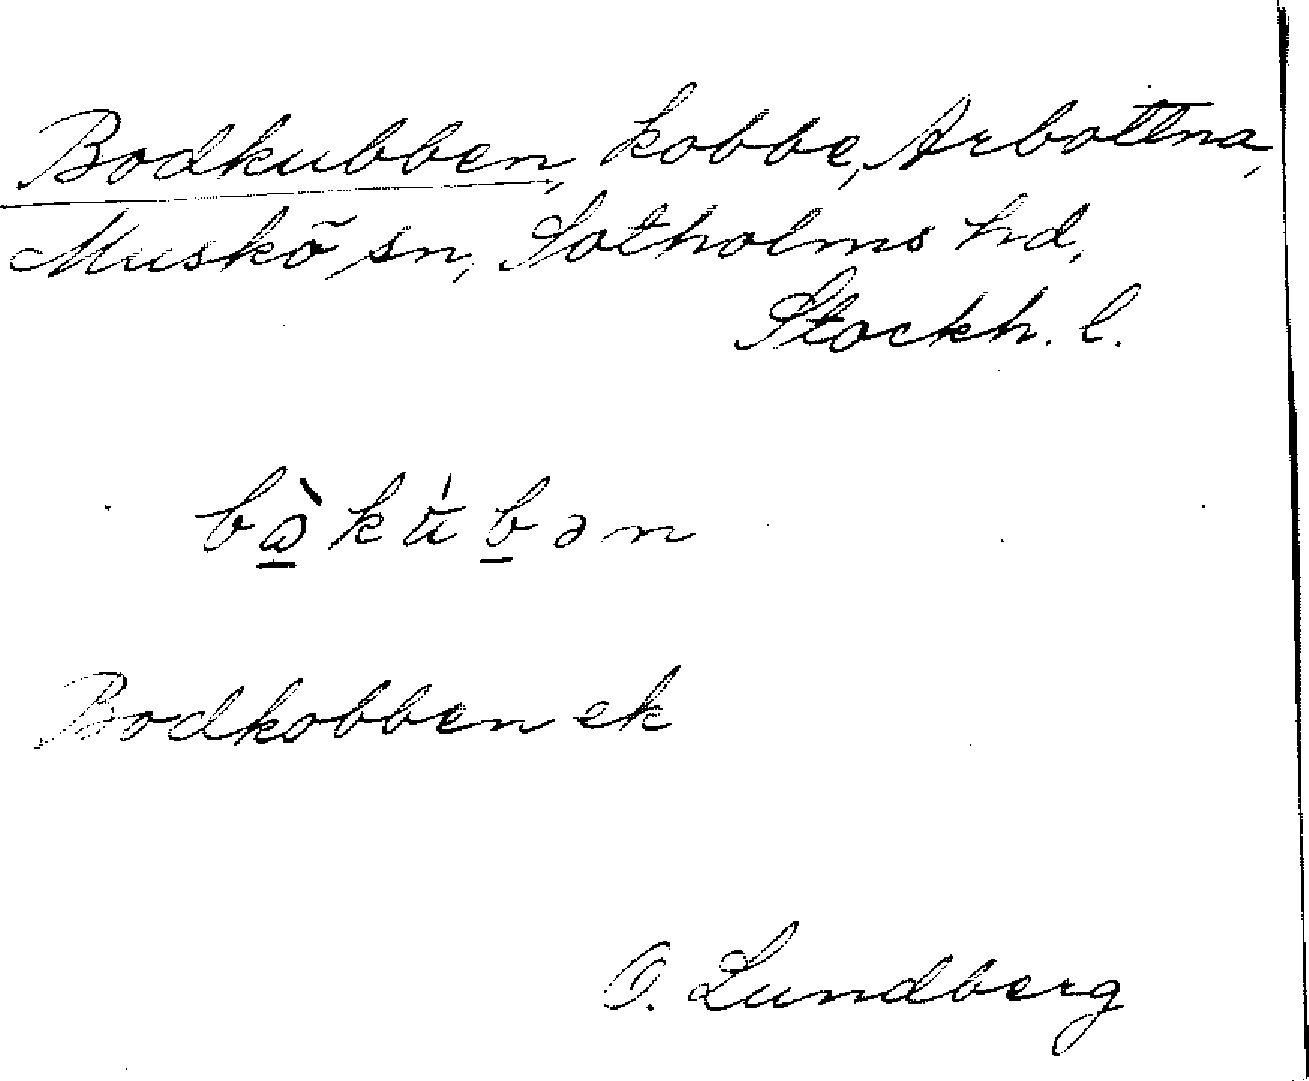 Bodkubben, kobbe, Arbottna,
Muskö sn, Sotholms hd,
Stockh. l.
Bodkobben ek
O. Lundberg